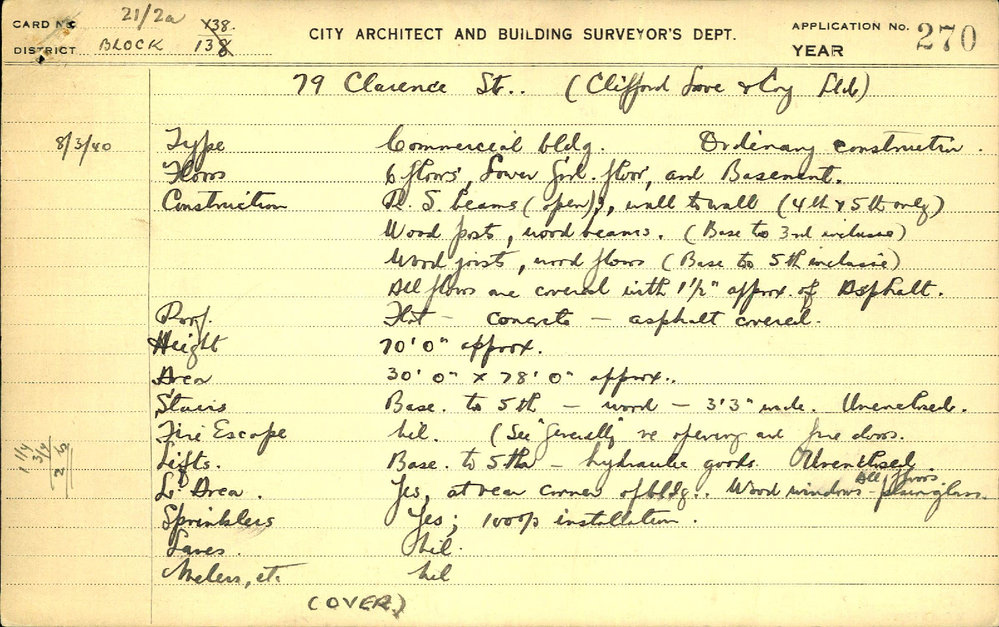 CARD No 21/2a
DISTRICT BLOCK 138. 138
CITY ARCHITECT AND BUILDING SURVEYOR'S DEPT.
APPLICATION No. 270
YEAR
79 Clarence St.. (Clifford Love & Coy Ltd)
8/3/40 Type Commercial bldg. Ordinary construction.
Floors 6 floors, Lower Grd. floor, and Basement.
Construction R. S. beams (open), wall to wall (4th & 5th only)
Wood posts, wood beams. (Base to 3rd inclusive)
Wood joists, wood floors (Base to 5th inclusive)
All floors are covered with 1½" approx. of Asphalt.
Roof. Flat - concrete - asphalt covered.
Height 70'0" approx.
Area 30'0" x 78'0" approx..
Stairs Base. to 5th - wood - 3'3" wide. Unenclosed.
Fire Escape Nil. (See "Generally" re opening and fire doors.
Lifts. Base. to 5th - hydraulic goods. Unenclosed.
Lt Area. Yes, at rear corner of bldg.. Wood windows - plain glass. All floors
Sprinklers Yes; 100% installation.
Lanes. Nil.
Meters, etc Nil
(OVER)